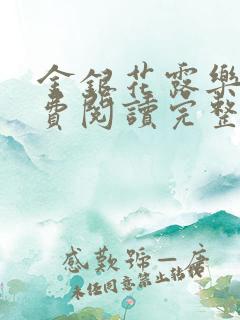 金銀花露樂
費閱讀完整
感歎號—唐
未經同意禁止轉載